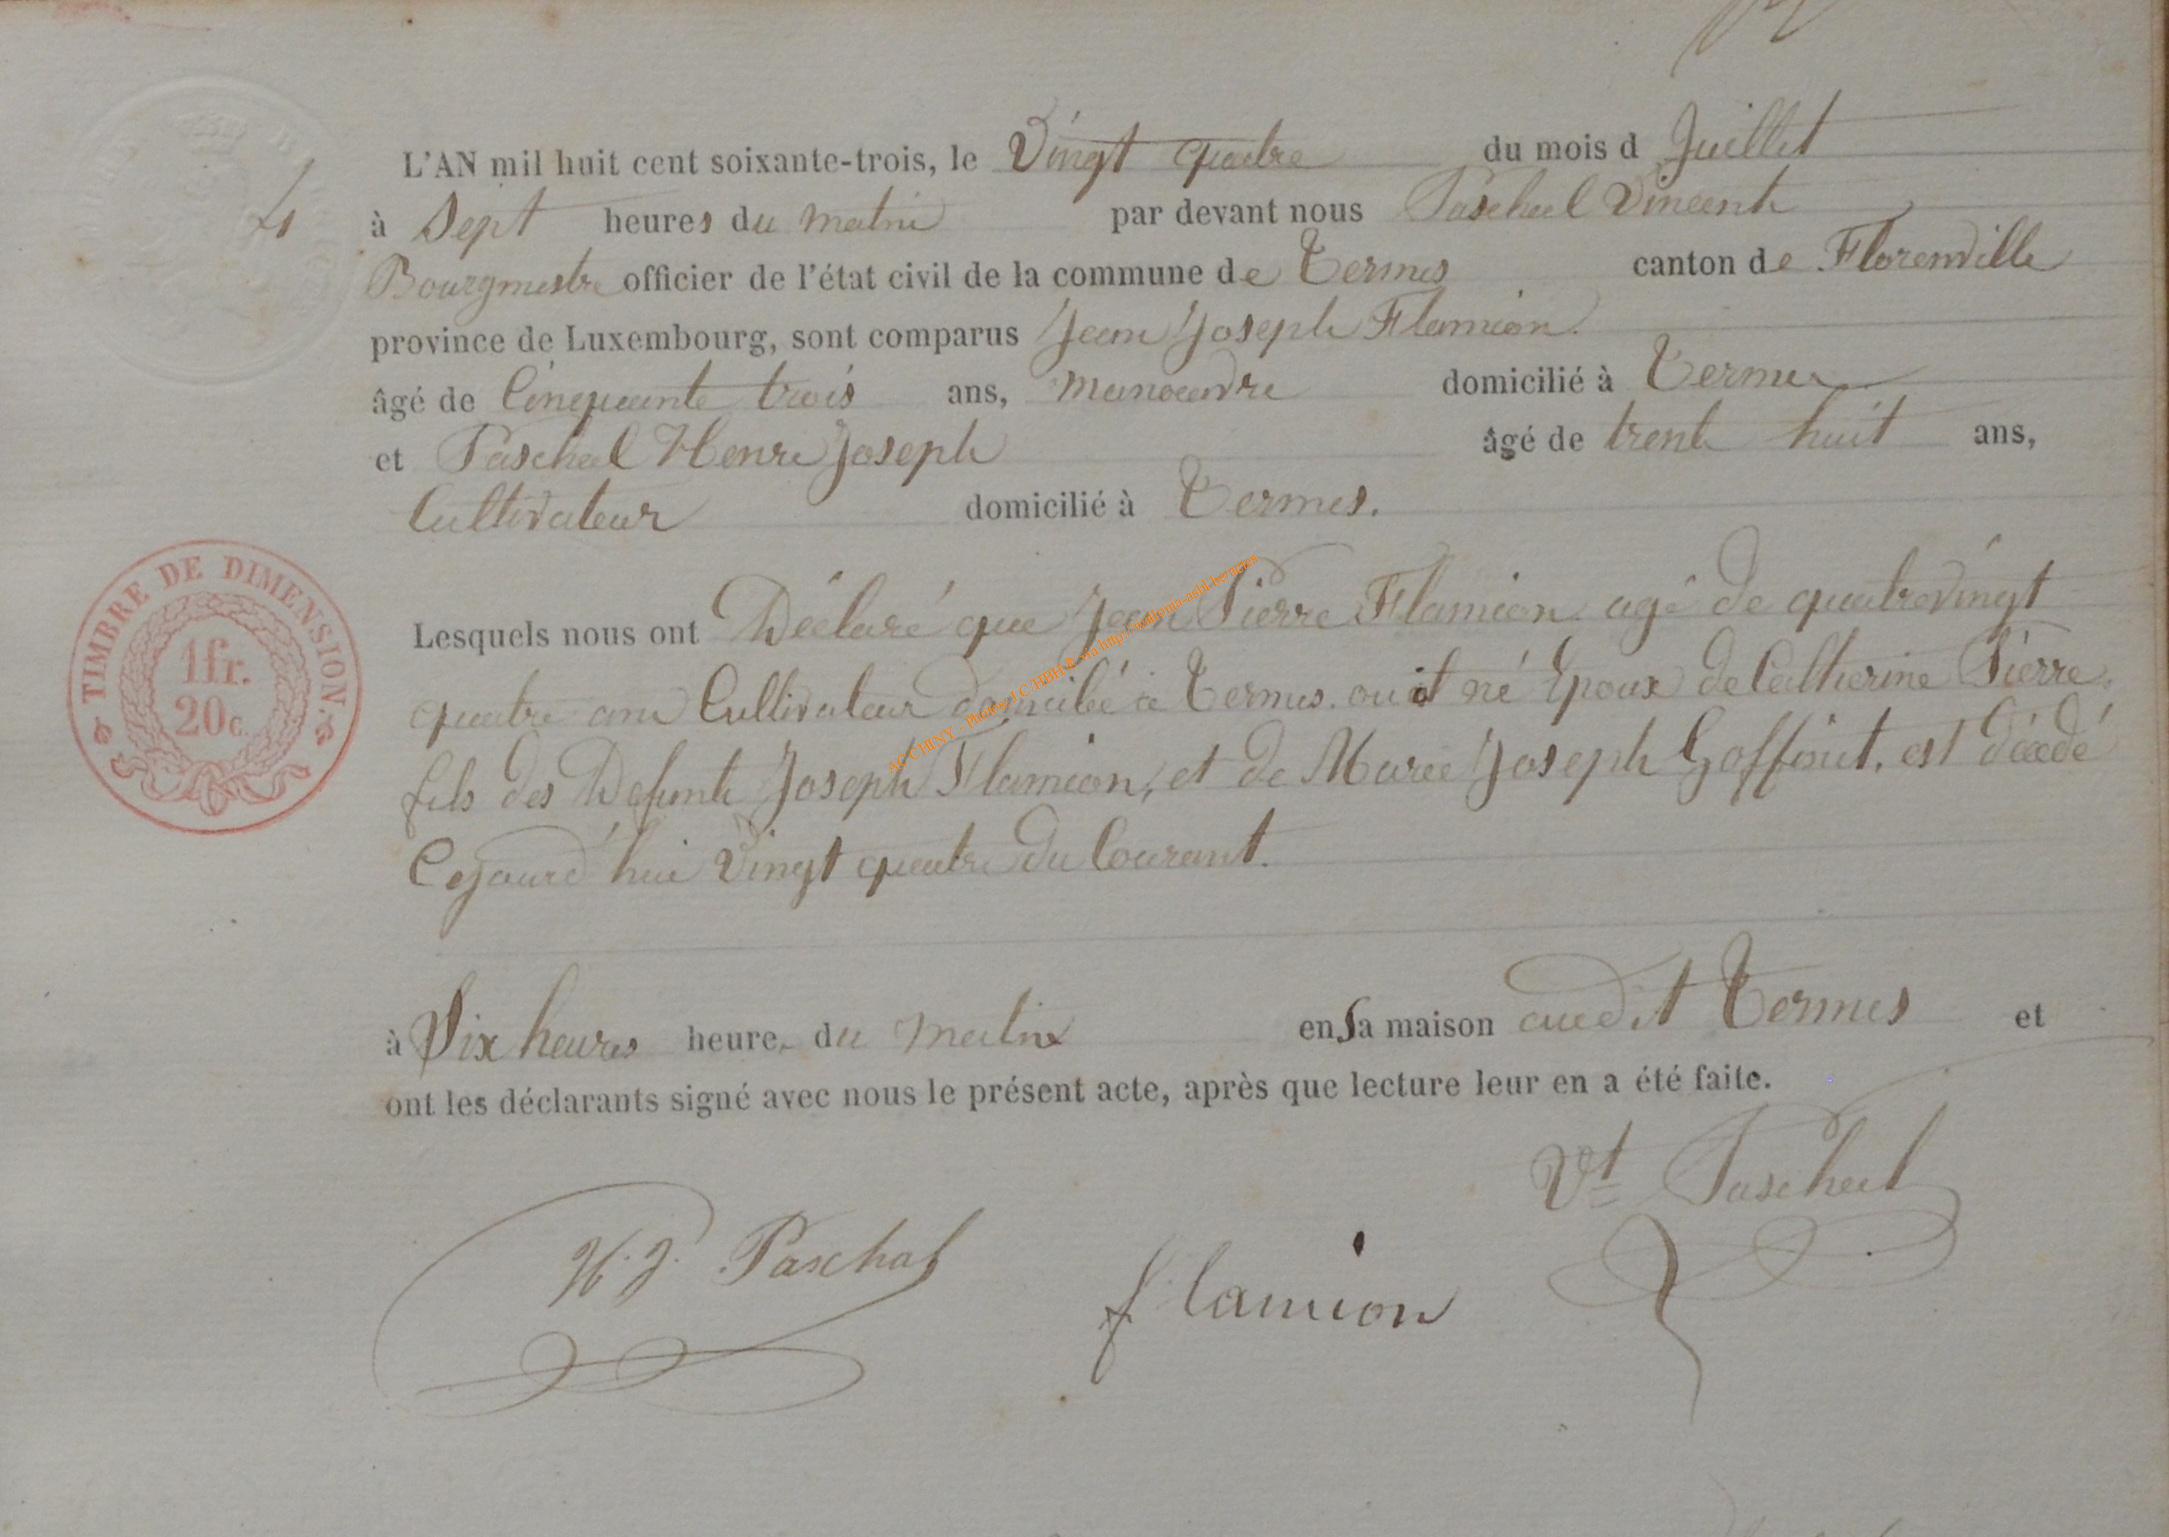 L'AN mil huit cent soixante-trois, le Vingt quatre du mois d Juillet
4
à Sept heures du matin par devant nous Paschal Vincent
Bourgmestre officier de l'état civil de la commune de Termes canton de Florenville
province de Luxembourg, sont comparus Jean Joseph Flamion.
âgé de Cinquante trois ans, manoeuvre domicilié à Termes
et Paschal Henri Joseph âgé de trente huit ans,
Cultivateur domicilié à Termes.
TIMBRE DE DIMENSION.
1fr.
20c.
Lesquels nous ont Déclaré que Jean Pierre Flamion agé de quatrevingt
quatre ans Cultivateur domicilié à Termes. ou il né Epoux de Catherine Pierre,
fils des Defunts Joseph Flamion, et de Marie Joseph Goffinet, est décedé
Cejourd'hui Vingt quatre du Courant.
AC CHINY - Photos J.C.HBHLR via http:
à Six heures heure du matin en sa maison audit Termes et
ont les déclarants signé avec nous le présent acte, après que lecture leur en a été faite.
Vt Paschal
H. J. Paschal
flamion